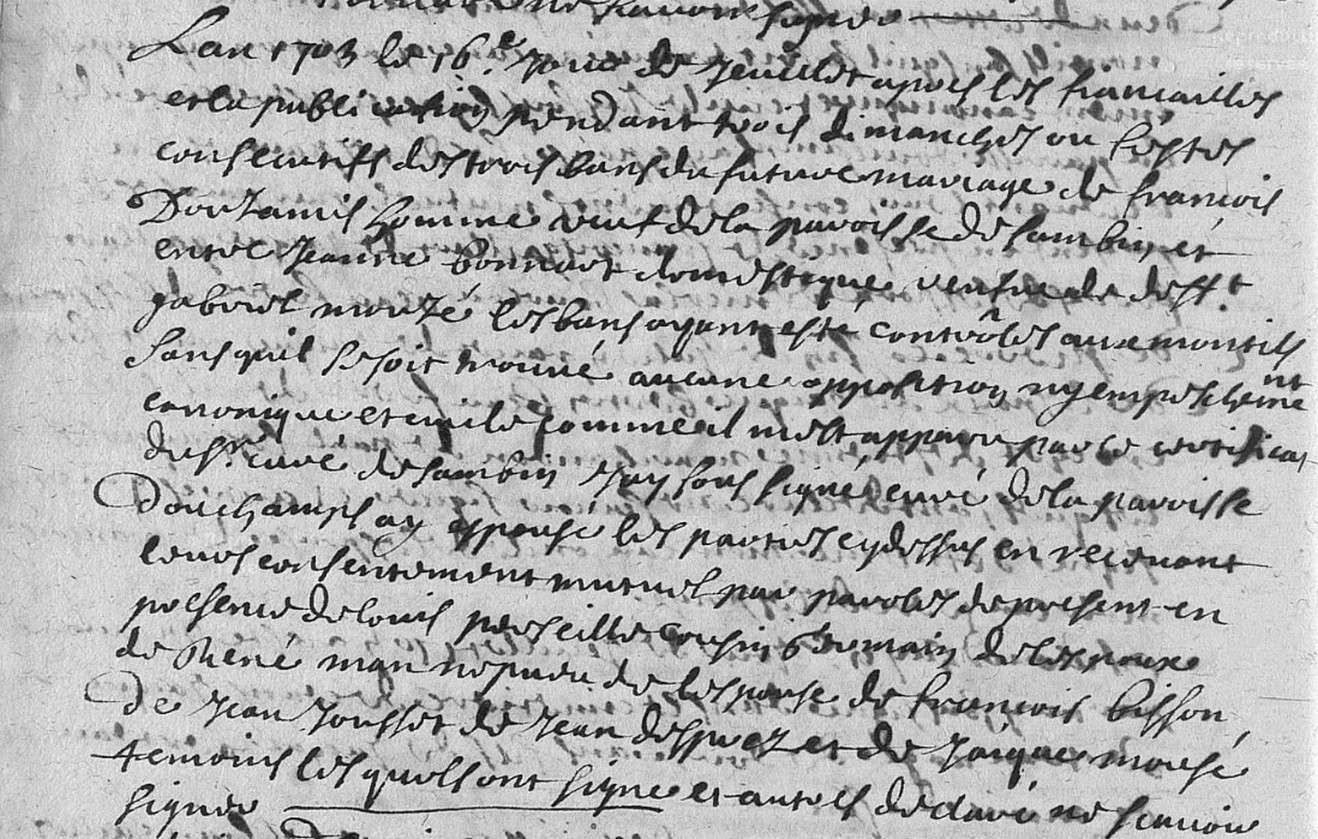 declaré ne scavoir signer
Lan 1703 le 16.e jour de jeuillet apres les fiancailles
et la publication pendant trois dimanches ou festes
consecutifs des trois bans du futur mariage de francois
Douzamis homme veuf de la paroisse de sambin et
entre Jeanne bonnart domestique veufue de deff.t
gabriel mouzé les bans ayant esté contrôles aux montils
sans quil se soit trouué aucune opposition ny empeschemnt
canonique et ciuile comme il mest apparu par le certificat
du sr. curé de sambin Jay sous signé curé de la paroisse
Douchamps ay epousé les parties cydessus en recevant
leurs consentement mutuel par paroles de present en
presence de louis perseille cousin germain de lespoux
de René man nepueu de lespouse de francois bisson
De Jean Jousset de Jean desprez et de Jacque mousé
temoins lesquels ont signe et autres declaré ne scauoir
signer